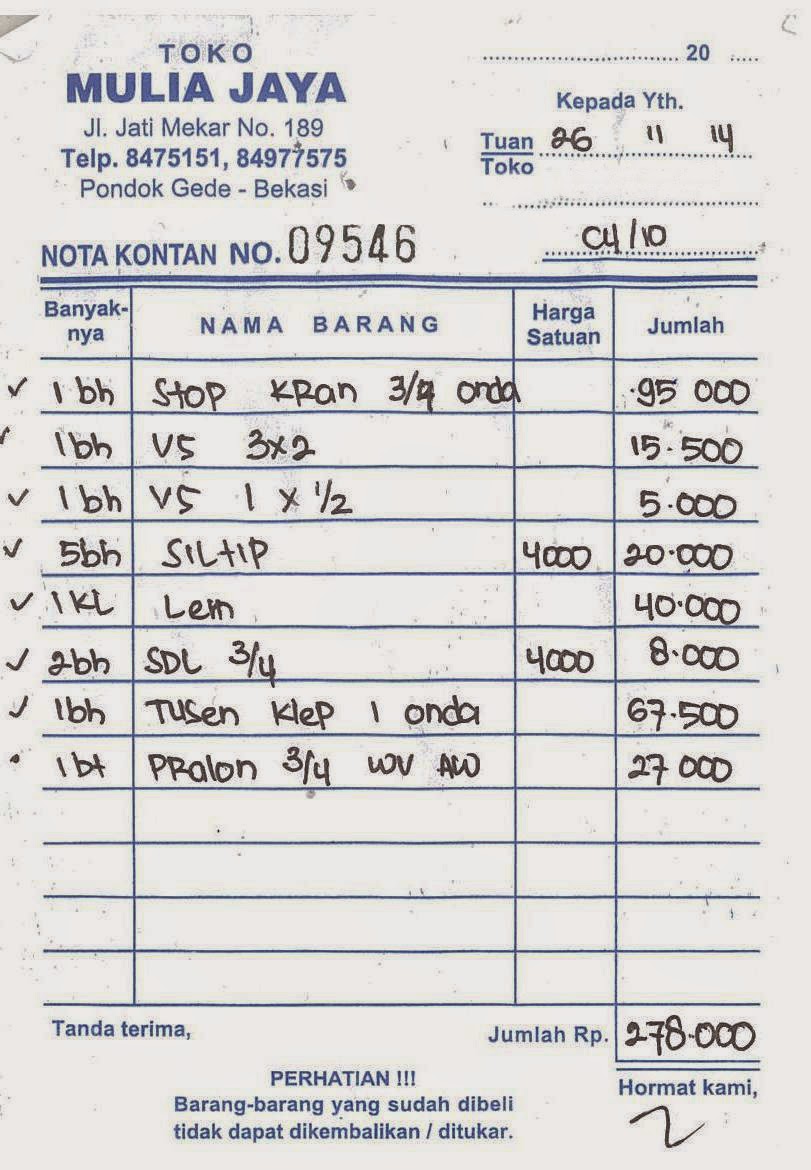 TOKO
MULIA JAYA
Jl. Jati Mekar No. 189
Telp. 8475151, 84977575
Pondok Gede - Bekasi
NOTA KONTAN NO. 09546
20
Kepada Yth.
Tuan 26 11 14
Toko
C4/10
Banyak-nya NAMA BARANG Harga Satuan Jumlah
1 bh Stop KRan 3/4 onda 95 000
1bh V5 3x2 15.500
1 bh V5 1 x 1/2 5.000
5bh SILtIP 4000 20.000
1 KL Lem 40.000
2bh SDL 3/4 4000 8.000
1bh TUSen Klep 1 onda 67.500
1 bt PRalon 3/4 WV AW 27 000
Tanda terima, Jumlah Rp. 278.000
PERHATIAN !!!
Barang-barang yang sudah dibeli
tidak dapat dikembalikan / ditukar.
Hormat kami,